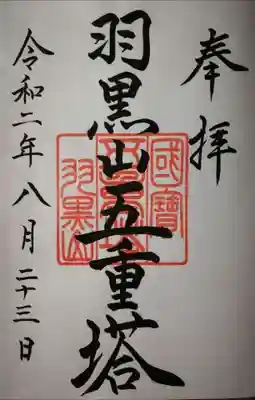 奉拝
羽黒山五重塔
令和二年八月二十三日
國寶
羽黒山